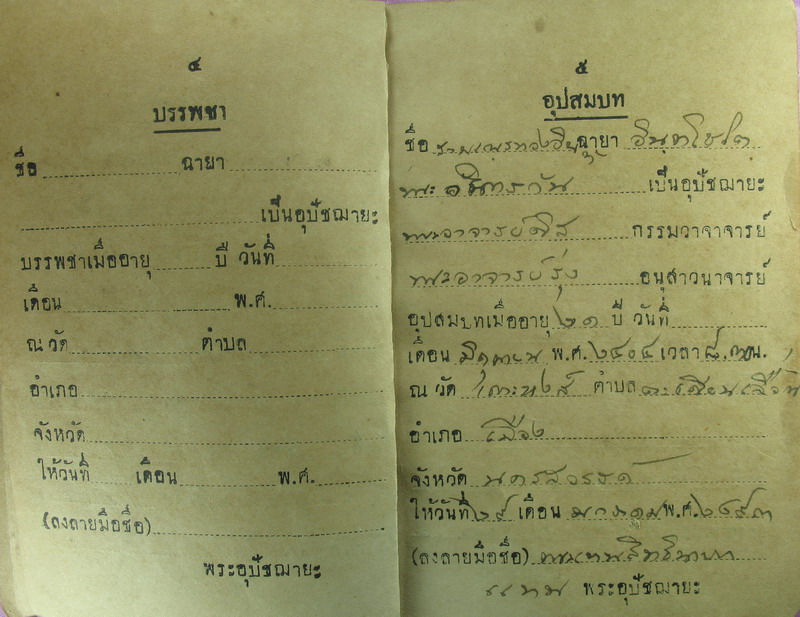 ๔
บรรพชา
ชื่อ ฉายา
เป็นอุปัชฌายะ
บรรพชาเมื่ออายุ ปี วันที่
เดือน พ.ศ.
ณ วัด ตำบล
อำเภอ
จังหวัด
ให้วันที่ เดือน พ.ศ.
(ลงลายมือชื่อ)
พระอุปัชฌายะ
๕
อุปสมบท
ชื่อ ฉายา อินฺทโชโต
พระ เป็นอุปัชฌายะ
พระอาจารย์ กรรมวาจาจารย์
พระอาจารย์รุ่ง อนุสาวนาจารย์
อุปสมบทเมื่ออายุ ๒๑ ปี วันที่
เดือน มิถุนายน พ.ศ. เวลา น.
ณ วัด ตำบล ตะเคียนเลื่อน
อำเภอ เมือง
จังหวัด นครสวรรค์
ให้วันที่ ๒๙ เดือน พ.ศ. ๒๔๙๓
(ลงลายมือชื่อ)
แทน พระอุปัชฌายะ